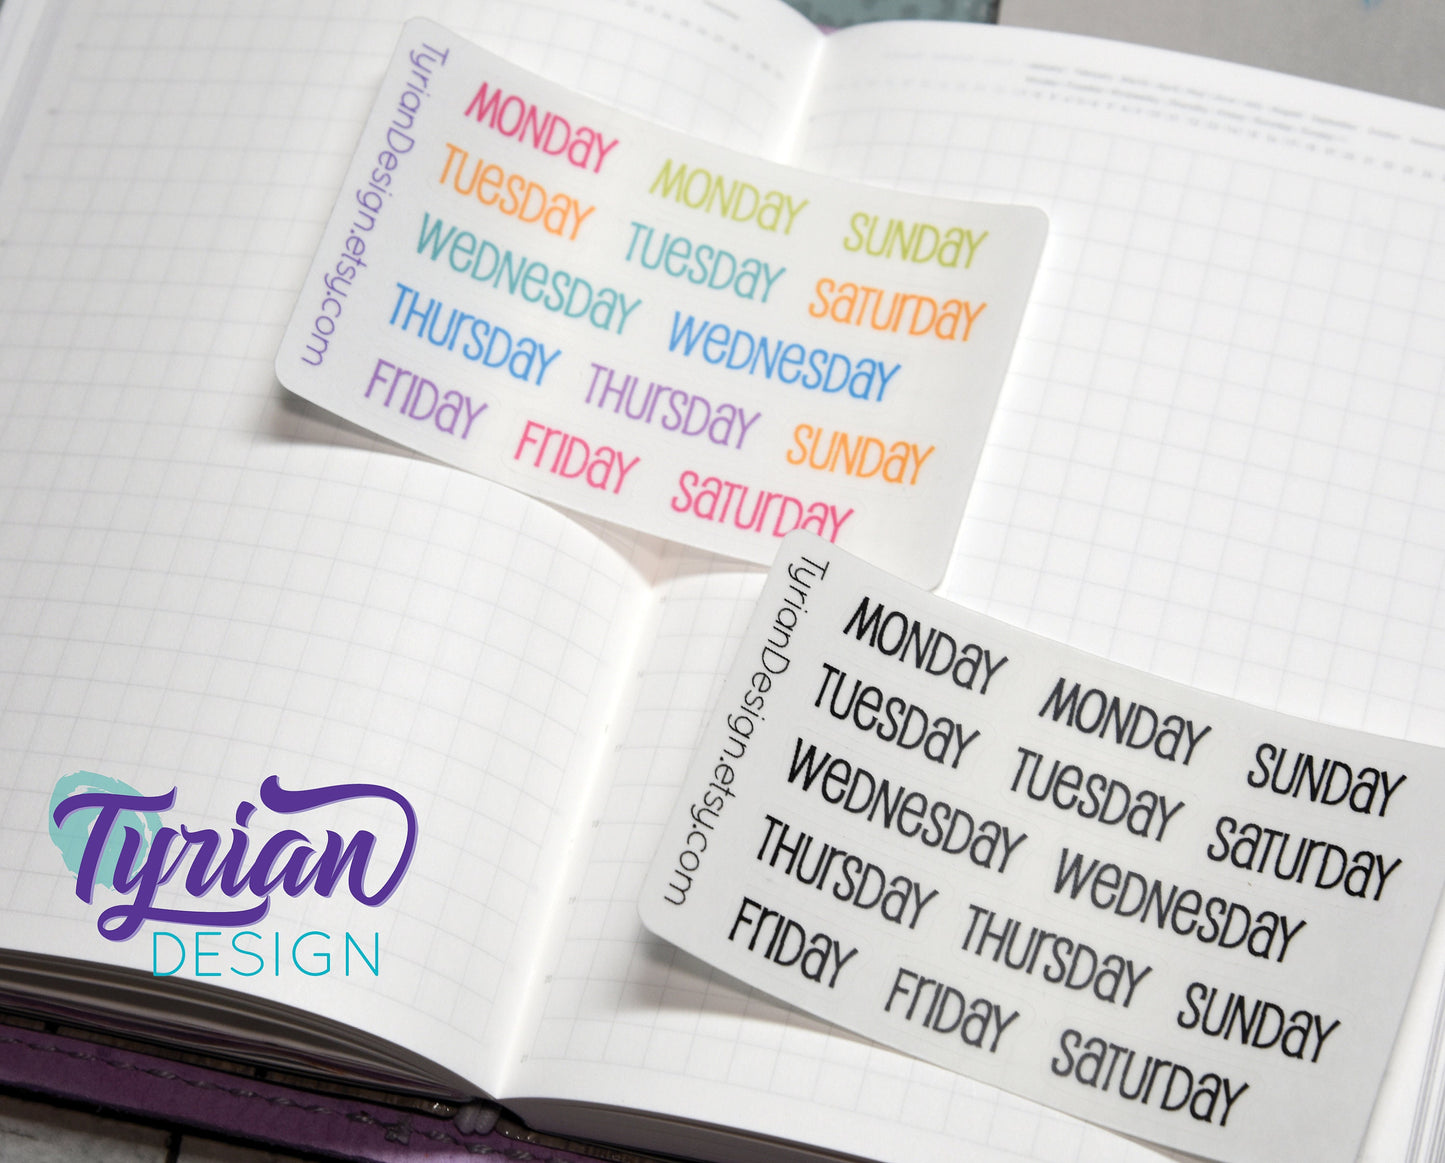 TyrianDesign.etsy.com
MONDAY
TUESDAY
WEDNESDAY
THURSDAY
FRIDAY
MONDAY
TUESDAY
WEDNESDAY
THURSDAY
FRIDAY
SUNDAY
SATURDAY
SUNDAY
SATURDAY
TyrianDesign.etsy.com
MONDAY
TUESDAY
WEDNESDAY
THURSDAY
FRIDAY
MONDAY
TUESDAY
WEDNESDAY
THURSDAY
FRIDAY
SUNDAY
SATURDAY
SUNDAY
SATURDAY
Tyrian
DESIGN